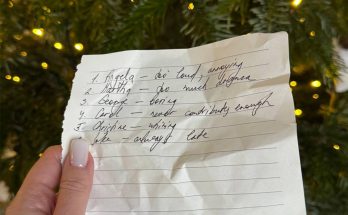 1 Angela – too loud, annoying
2 – too much drama
3 George – boring
4 Carol – never contributes enough
5 Christine – whining
– always late